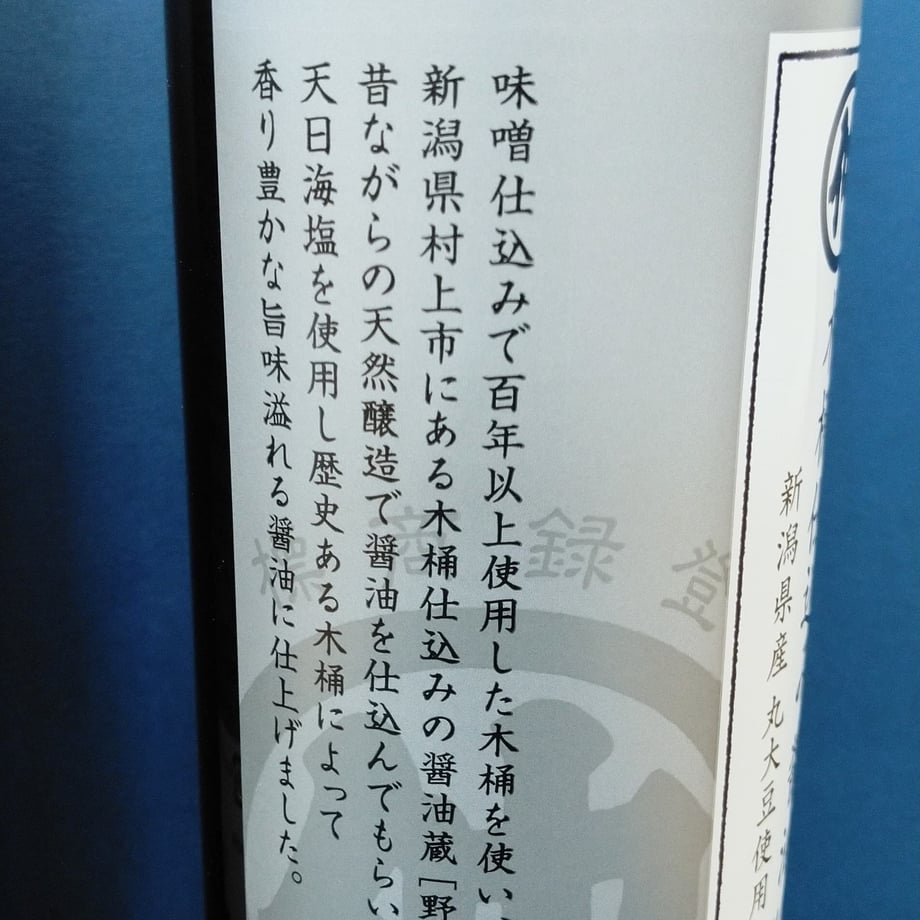 味噌仕込みで百年以上使用した木桶を使い、
新潟県村上市にある木桶仕込みの醤油蔵[野
昔ながらの天然醸造で醤油を仕込んでもらい
天日海塩を使用し歴史ある木桶によって
香り豊かな旨味溢れる醤油に仕上げました。
登録商標
新潟県産 丸大豆使用